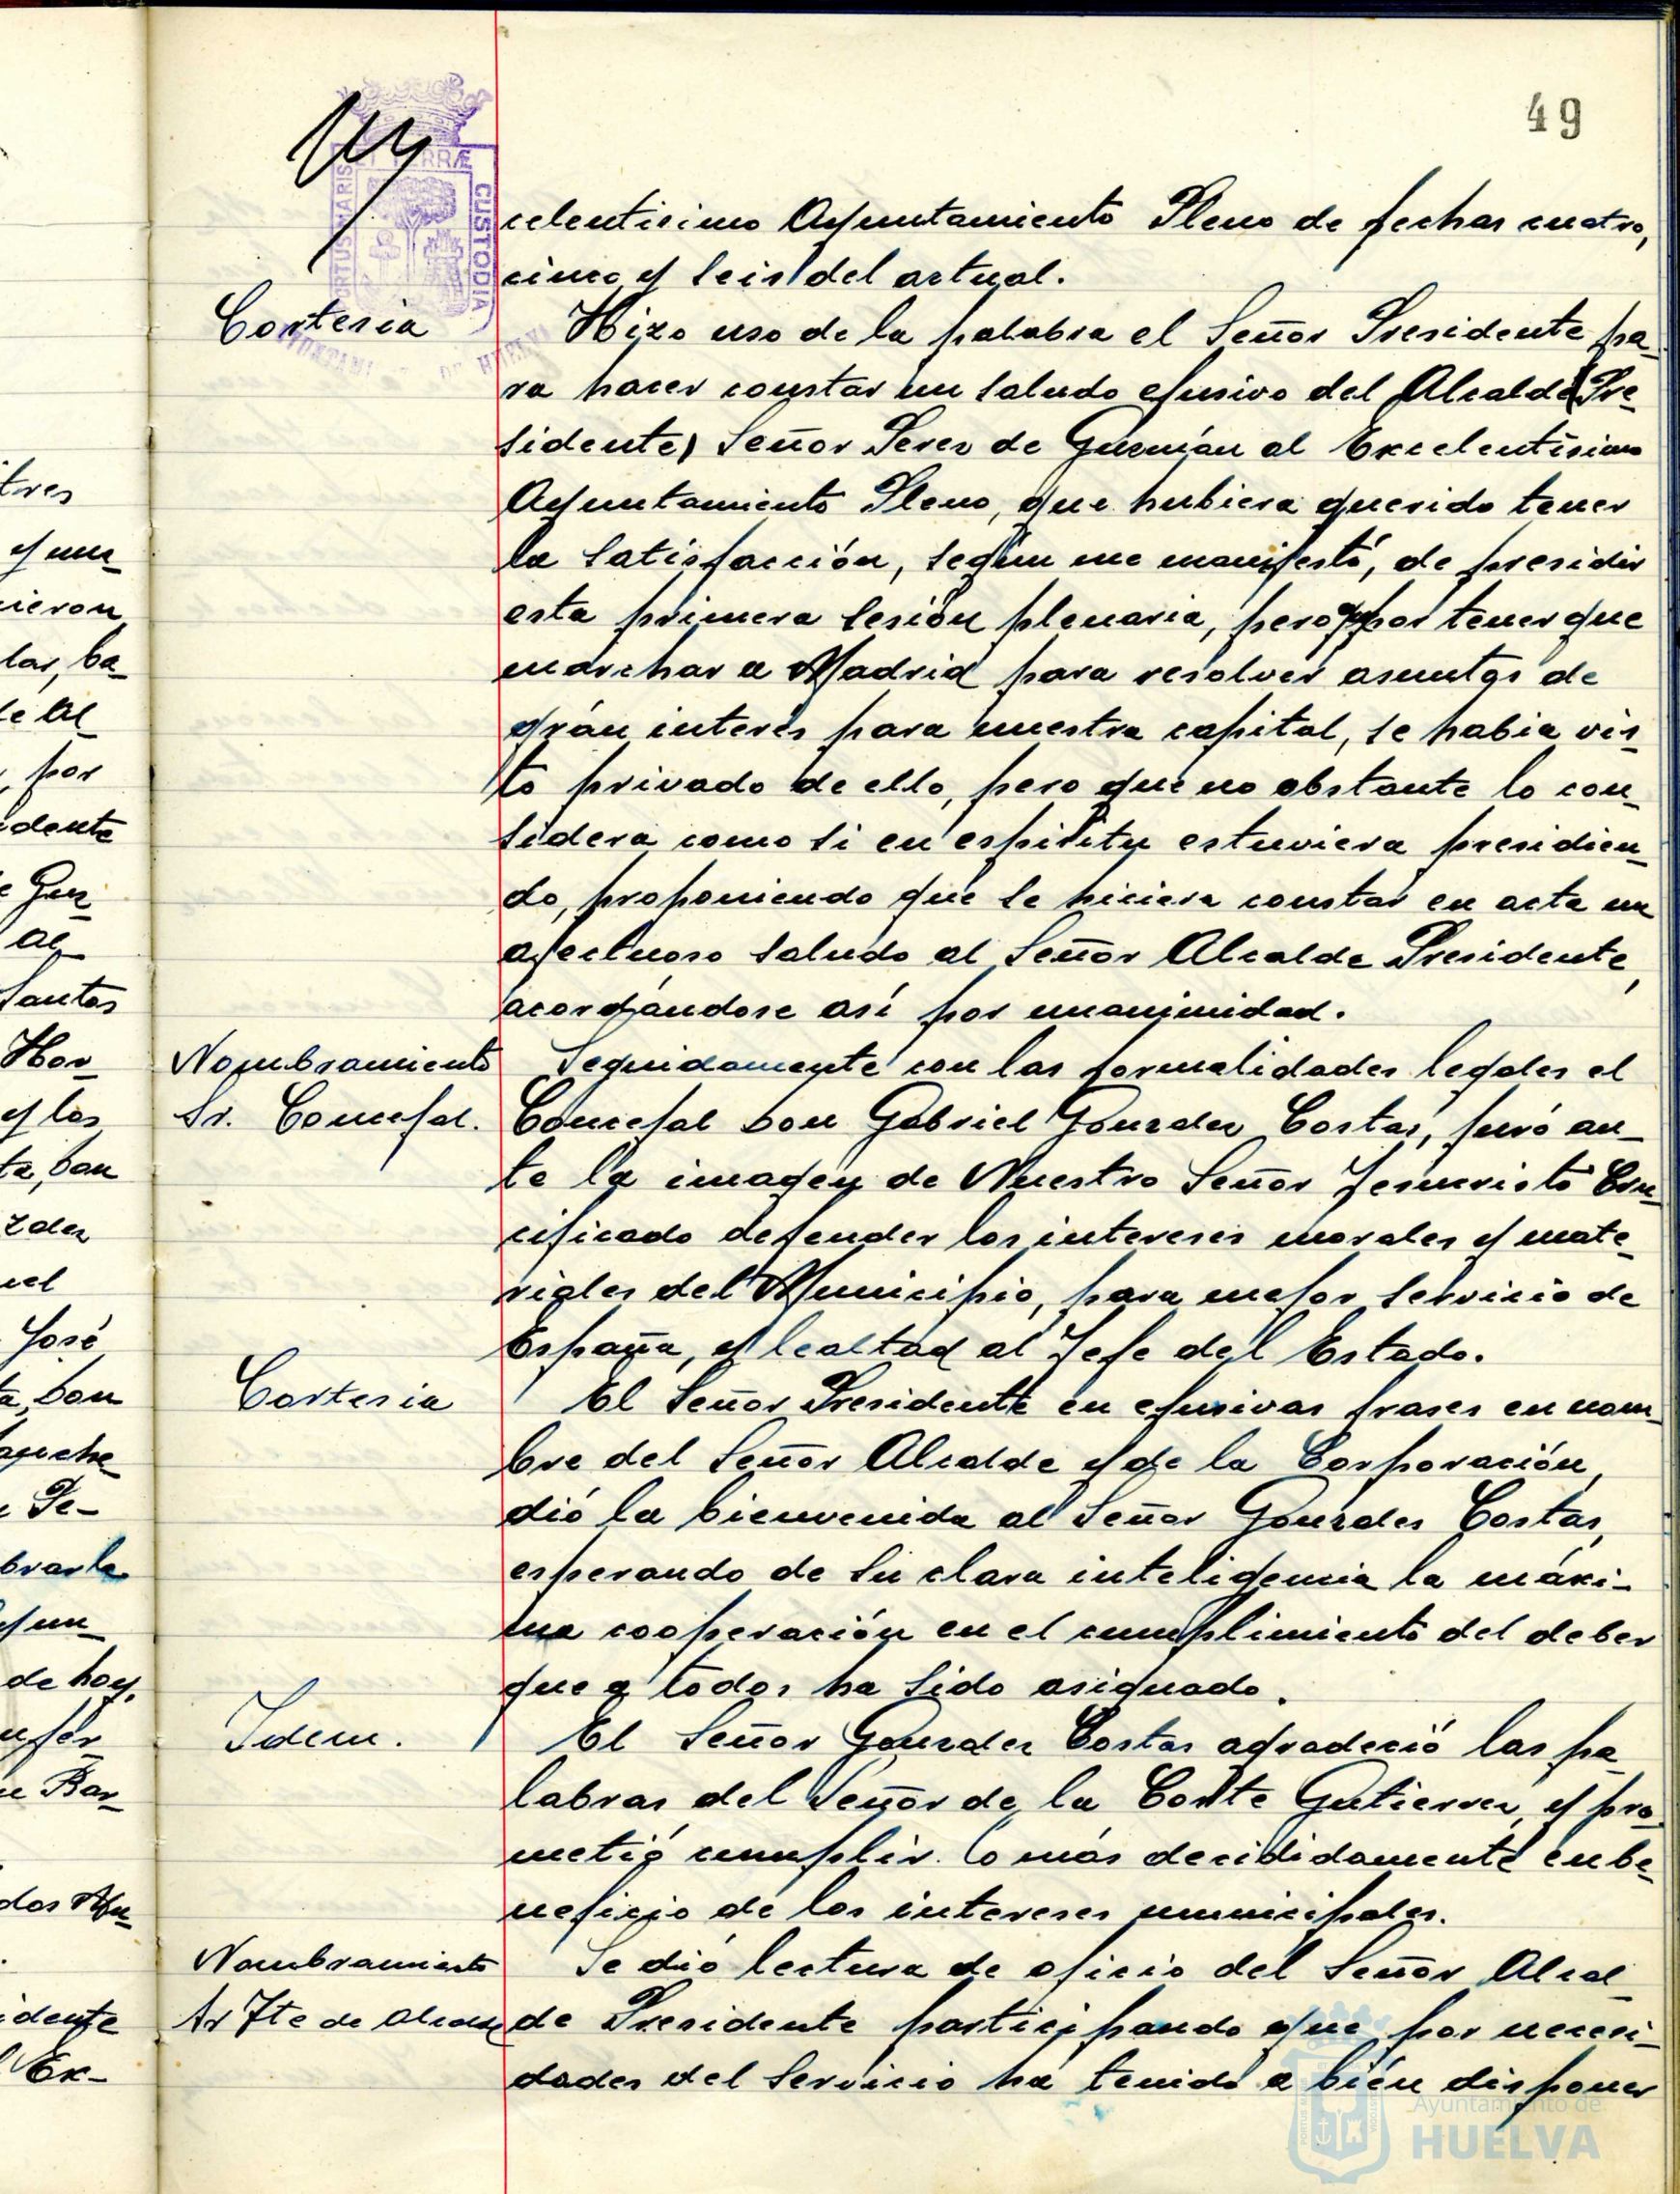 49
celentisimo Ayuntamiento Pleno de fechas cuatro,
cinco y seis del actual.
Cortesia
Hizo uso de la palabra el Señor Presidente pa_
ra hacer constar un saludo efusivo del Alcalde (Pre_
sidente) Señor Perez de Guzmán al Excelentísimo
Ayuntamiento Pleno, que hubiera querido tener
la satisfacción, según me manifestó, de presidir
esta primera sesión plenaria, pero por tener que
marchar a Madrid para resolver asuntos de
grán interés para nuestra capital, se habia vis_
to privado de ello, pero que no obstante lo con_
sidera como si en espiritu estuviera presidien_
do, proponiendo que se hiciera constar en acta un
afectuoso saludo al Señor Alcalde Presidente,
acordándose así por unanimidad.
Nombramiento
Sr. Concejal.
Seguidamente con las formalidades legales el
Concejal Don Gabriel Gonzalez Costas, juró an_
te la imagen de Nuestro Señor Jesucristo Cru_
cificado defender los intereses morales y mate_
riales del Municipio, para mejor servicio de
España, y lealtad al Jefe del Estado.
Cortesia
El Señor Presidente en efusivas frases en nom_
bre del Señor Alcalde y de la Corporación,
dió la bienvenida al Señor Gonzales Costas,
esperando de su clara inteligencia la máxi-
ma cooperación en el cumplimiento del deber
que a todos ha sido asignado.
Idem.
El Señor Gonzalez Costas agradeció las pa_
labras del Señor de la Corte Gutierrez, y pro_
metió cumplir lo más decididamente en be_
neficio de los intereses municipales.
Nombramiento
Sr Tte de Alcalde
Se dió lectura de oficio del Señor Alcal_
de Presidente participando que por necesi_
dades del Servicio ha tenido a bién disponer
tres
y un_
cieron
las, ba_
de Al_
, por
idente
e Guz_
al_
Santos
Hor_
y los
ta, Don
zalez
uel
José
ta, Don
anche_
e Pe-
brarla
y un_
de hoy,
e Bar_
idente
Ex-
PORTUS MARIS
ET TERRÆ
CUSTODIA
DE HUELVA
Ayuntamiento de
HUELVA